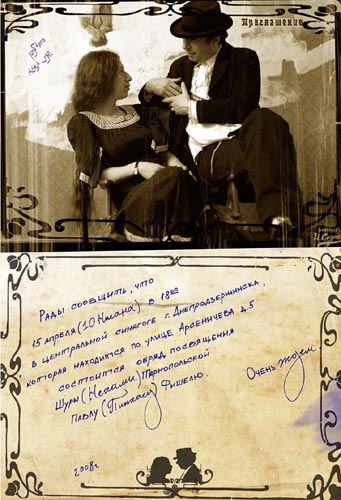 Приглашение
Рады сообщить, что
15 апреля (10 Нисана) в 18⁰⁰
в центральной синагоге г. Днепродзержинска,
которая находится по улице Арсеничева д.5
состоится обряд посвящения
Шуры (Нехамы) Тарнопольской
Павлу (Пинхасу) Фишелю.
Очень ждем.
2008г